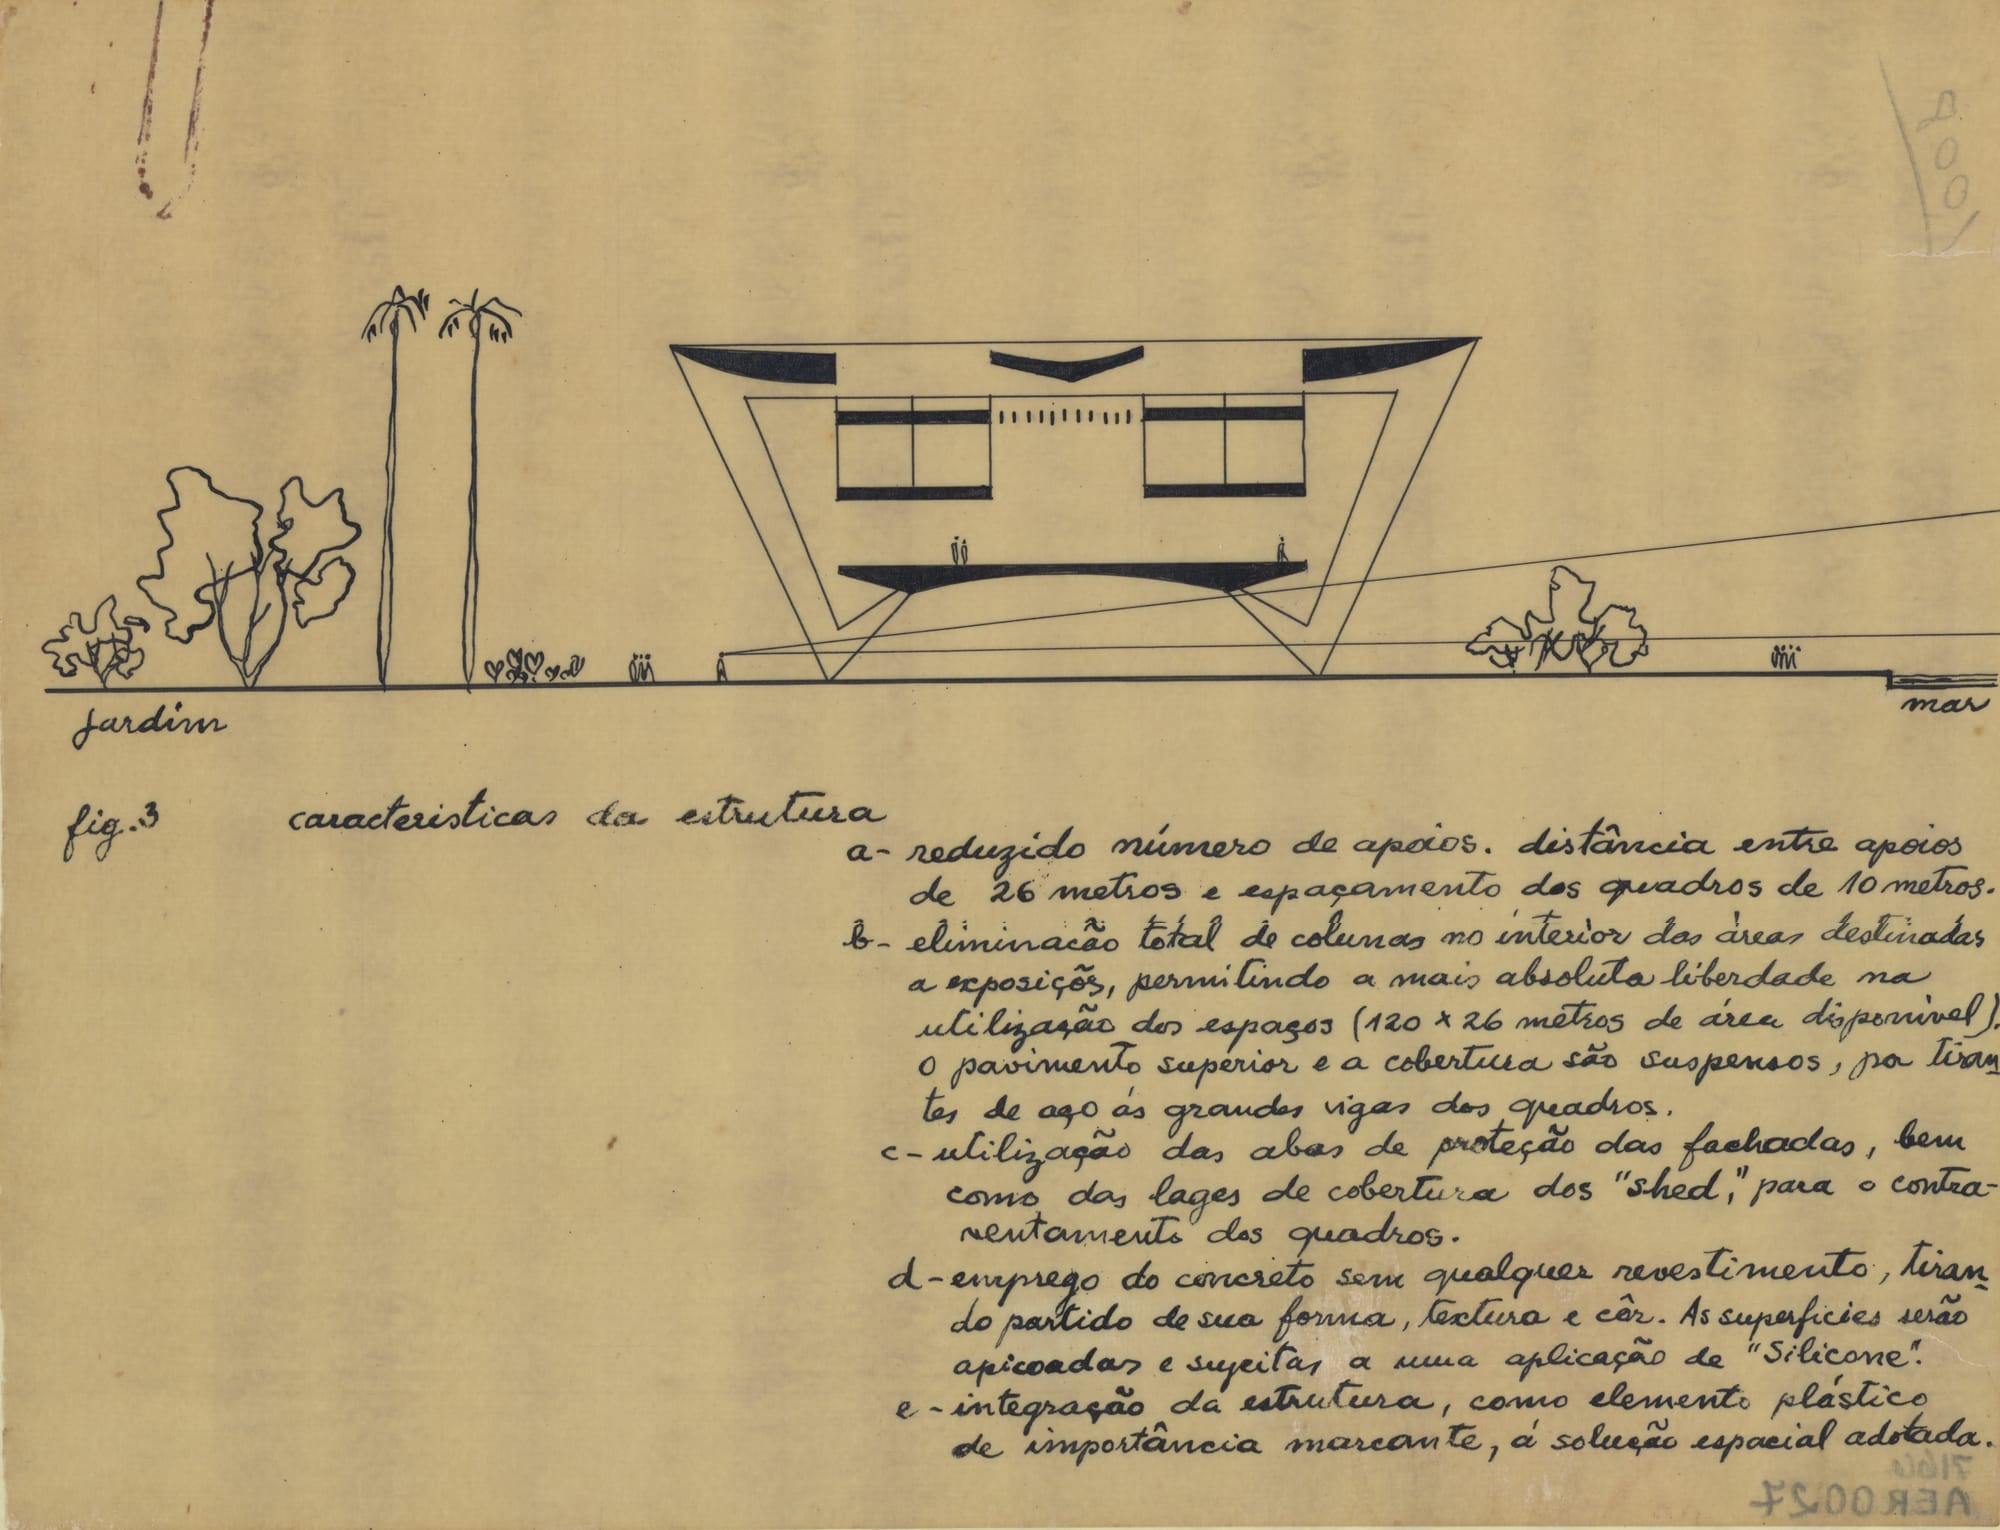 jardim
mar
fig.3 caracteristicas da estrutura
a- reduzido número de apoios. distância entre apoios
de 26 metros e espaçamento dos quadros de 10 metros.
b- eliminacão total de colunas no interior das áreas destinadas
a exposiçõs, permitindo a mais absoluta liberdade na
utilização dos espaços (120 x 26 metros de área disponivel).
o pavimento superior e a cobertura são suspensos, por tiran-
tes de aço ás grandes vigas dos quadros.
c- utilização das abas de proteção das fachadas, bem
como das lages de cobertura dos "shed", para o contra-
ventamento dos quadros.
d- emprego do concreto sem qualquer revestimento, tiran-
do partido de sua forma, textura e côr. As superficies serão
apicoadas e sujeitas a uma aplicação de "Silicone".
e- integração da estrutura, como elemento plástico
de importância marcante, á solução espacial adotada.
AER0027